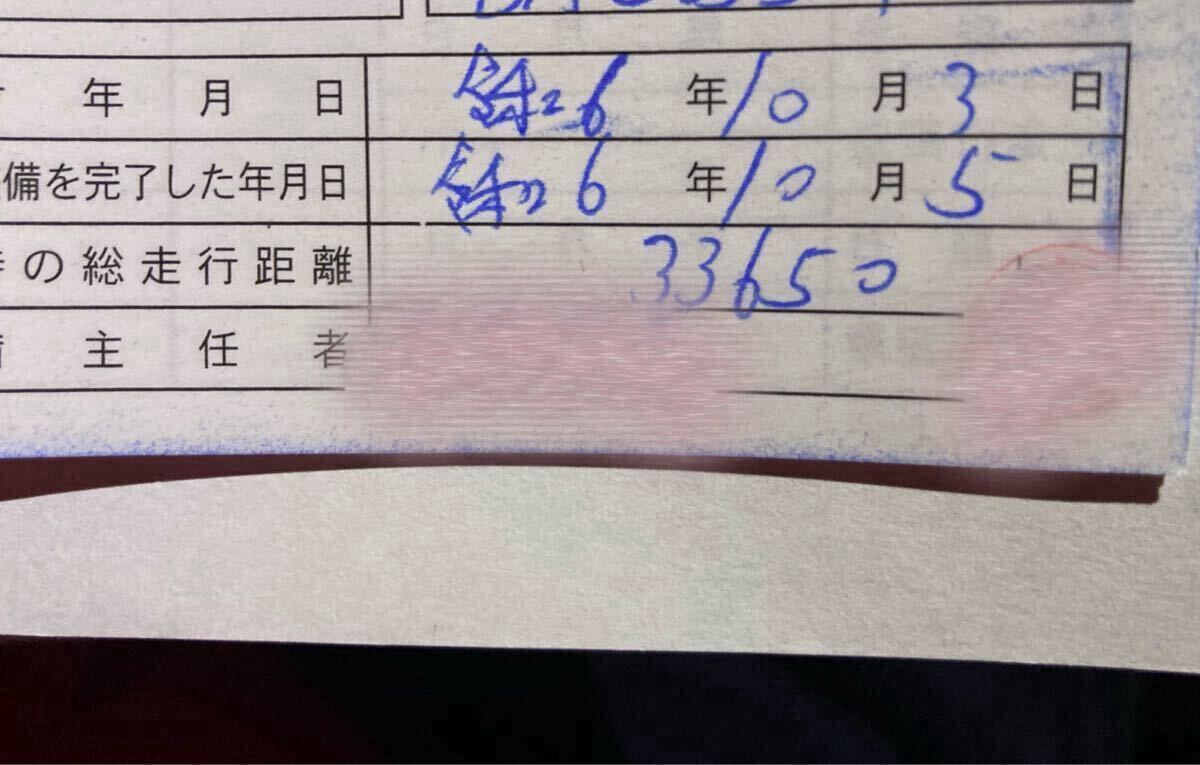 年月日 令和6年10月3日
備を完了した年月日 令和6年10月5日
の総走行距離 33650
主任者